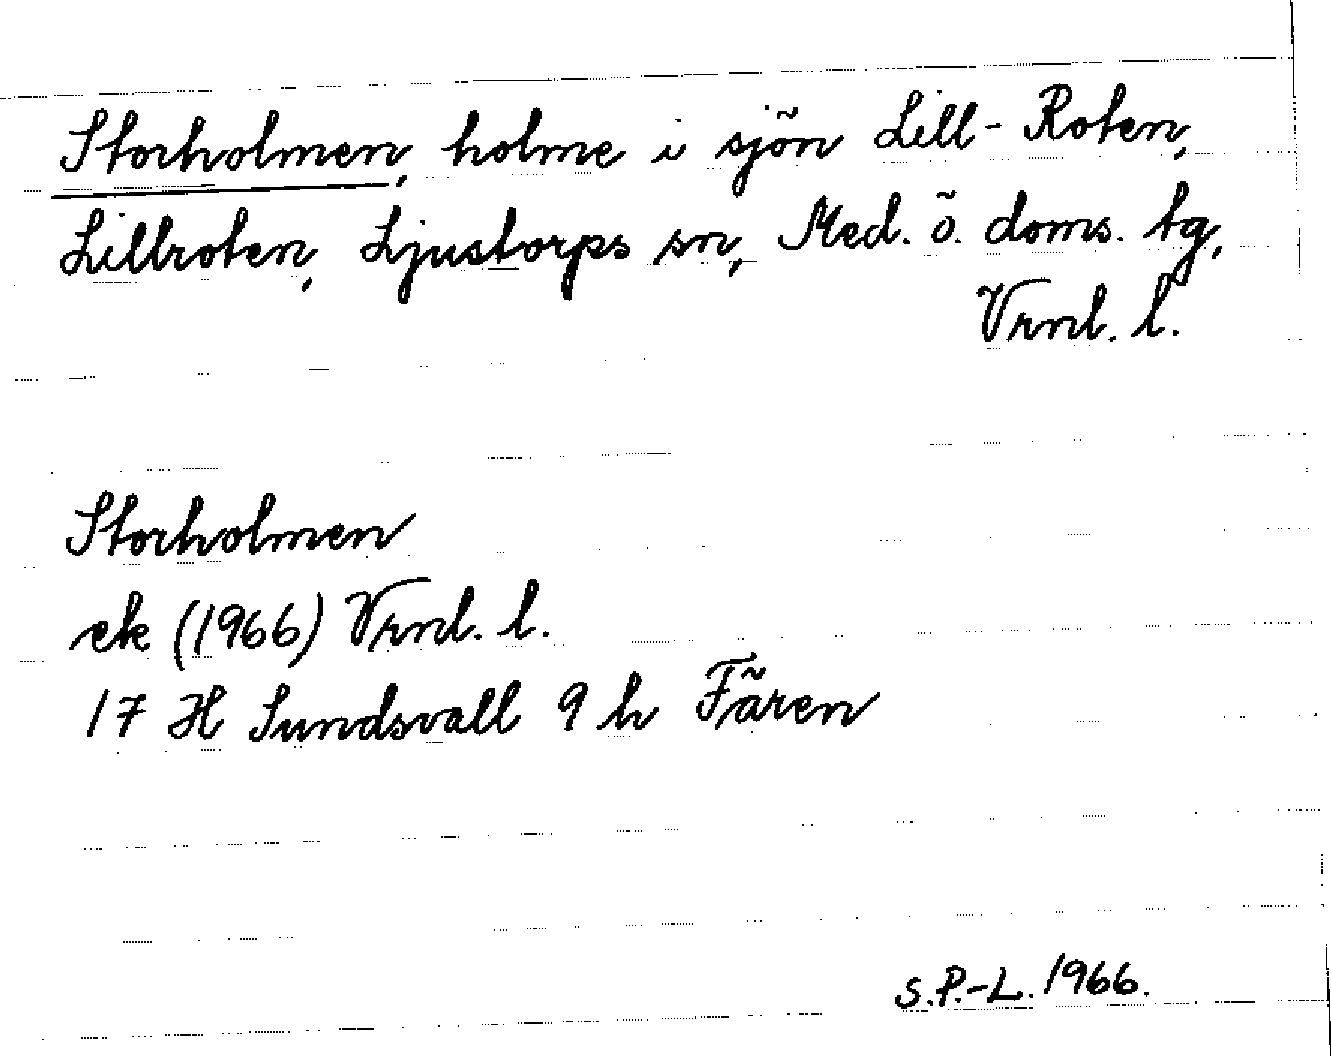 Storholmen, holme i sjön Lill-Roten,
Lillroten, Ljustorps sn, Med. ö. doms. tg,
Vrnl. l.
Storholmen
ek (1966) Vrnl. l.
17 H Sundsvall 9 h Fären
S.P.-L. 1966.